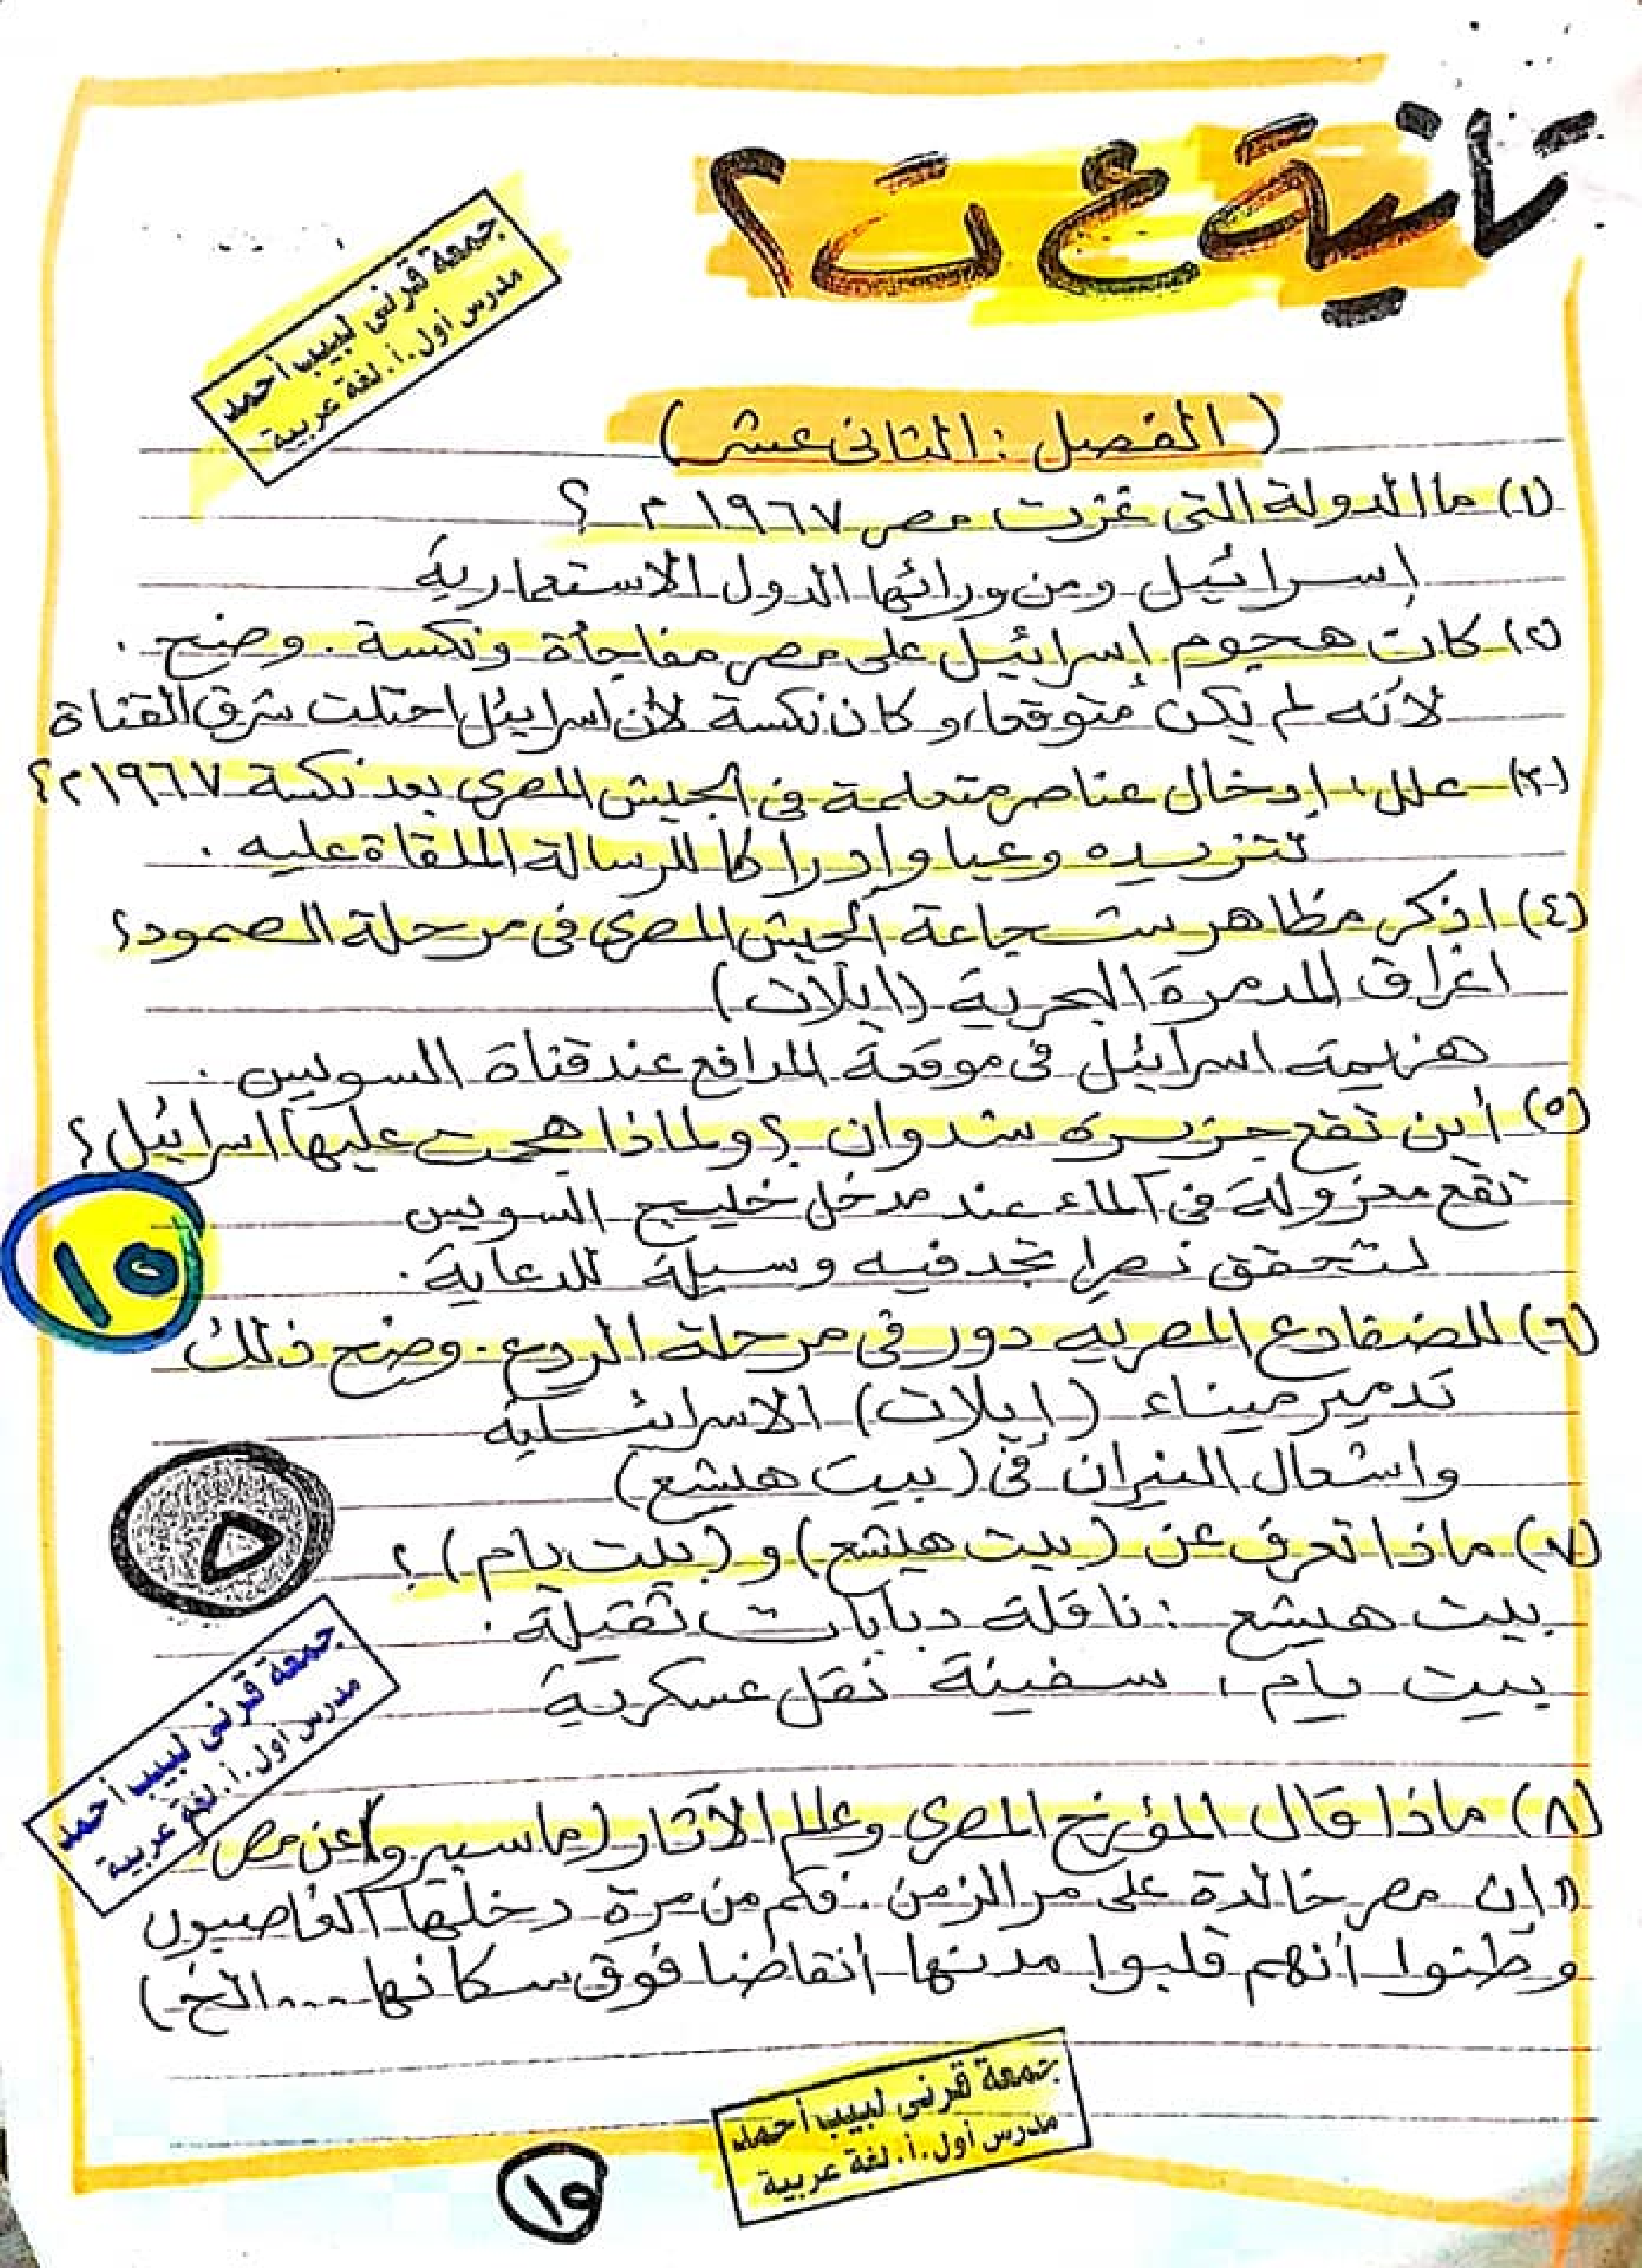 تانية ع ت٢
جمعة قرنى لبيب أحمد
مدرس أول.أ.لغة عربية
(الفصل : الثانى عشر)
(١) ما الدولة التى غزت مصر ١٩٦٧ م ؟
إسرائيل ومن ورائها الدول الاستعمارية
(٢) كان هجوم إسرائيل على مصر مفاجأة ونكسة . وضح .
لأنه لم يكن متوقعا، وكان نكسة لأن اسرائيل احتلت شرق القناة
(٣) علل : إدخال عناصر متعلمة فى الجيش المصرى بعد نكسة ١٩٦٧ م ؟
لتزيده وعيا وإدراكا للرسالة الملقاة عليه .
(٤) اذكر مظاهر شجاعة الجيش المصرى فى مرحلة الصمود ؟
اغراق المدمرة البحرية (ايلات)
هزيمة اسرائيل فى موقعة المدافع عند قناة السويس .
(٥) أين تقع جزيرة شدوان ؟ ولماذا هجمت عليها اسرائيل ؟
تقع معزولة فى الماء عند مدخل خليج السويس
لتحقق نصرا تجد فيه وسيلة للدعاية .
١٥
(٦) للضفادع المصرية دور فى مرحلة الردع . وضح ذلك
تدمير ميناء (إيلات) الاسرائيلية
واشعال النيران فى (بيت هلشع)
(٧) ماذا تعرف عن (بيت هيلشع) و (بيت يام) ؟
بيت هيشع : ناقلة دبابات ثقيلة .
بيت يام : سفينة نقل عسكرية
جمعة قرنى لبيب أحمد
مدرس أول.أ.لغة عربية
(٨) ماذا قال المؤرخ المصرى وعالم الآثار (ماسبيرو) عن مصر
"إن مصر خالدة على مر الزمن . فكم من مرة دخلها الغاصبون
وظنوا أنهم قلبوا مدنها أنقاضا فوق سكانها .... الخ)
جمعة قرنى لبيب أحمد
مدرس أول.أ.لغة عربية
١٥